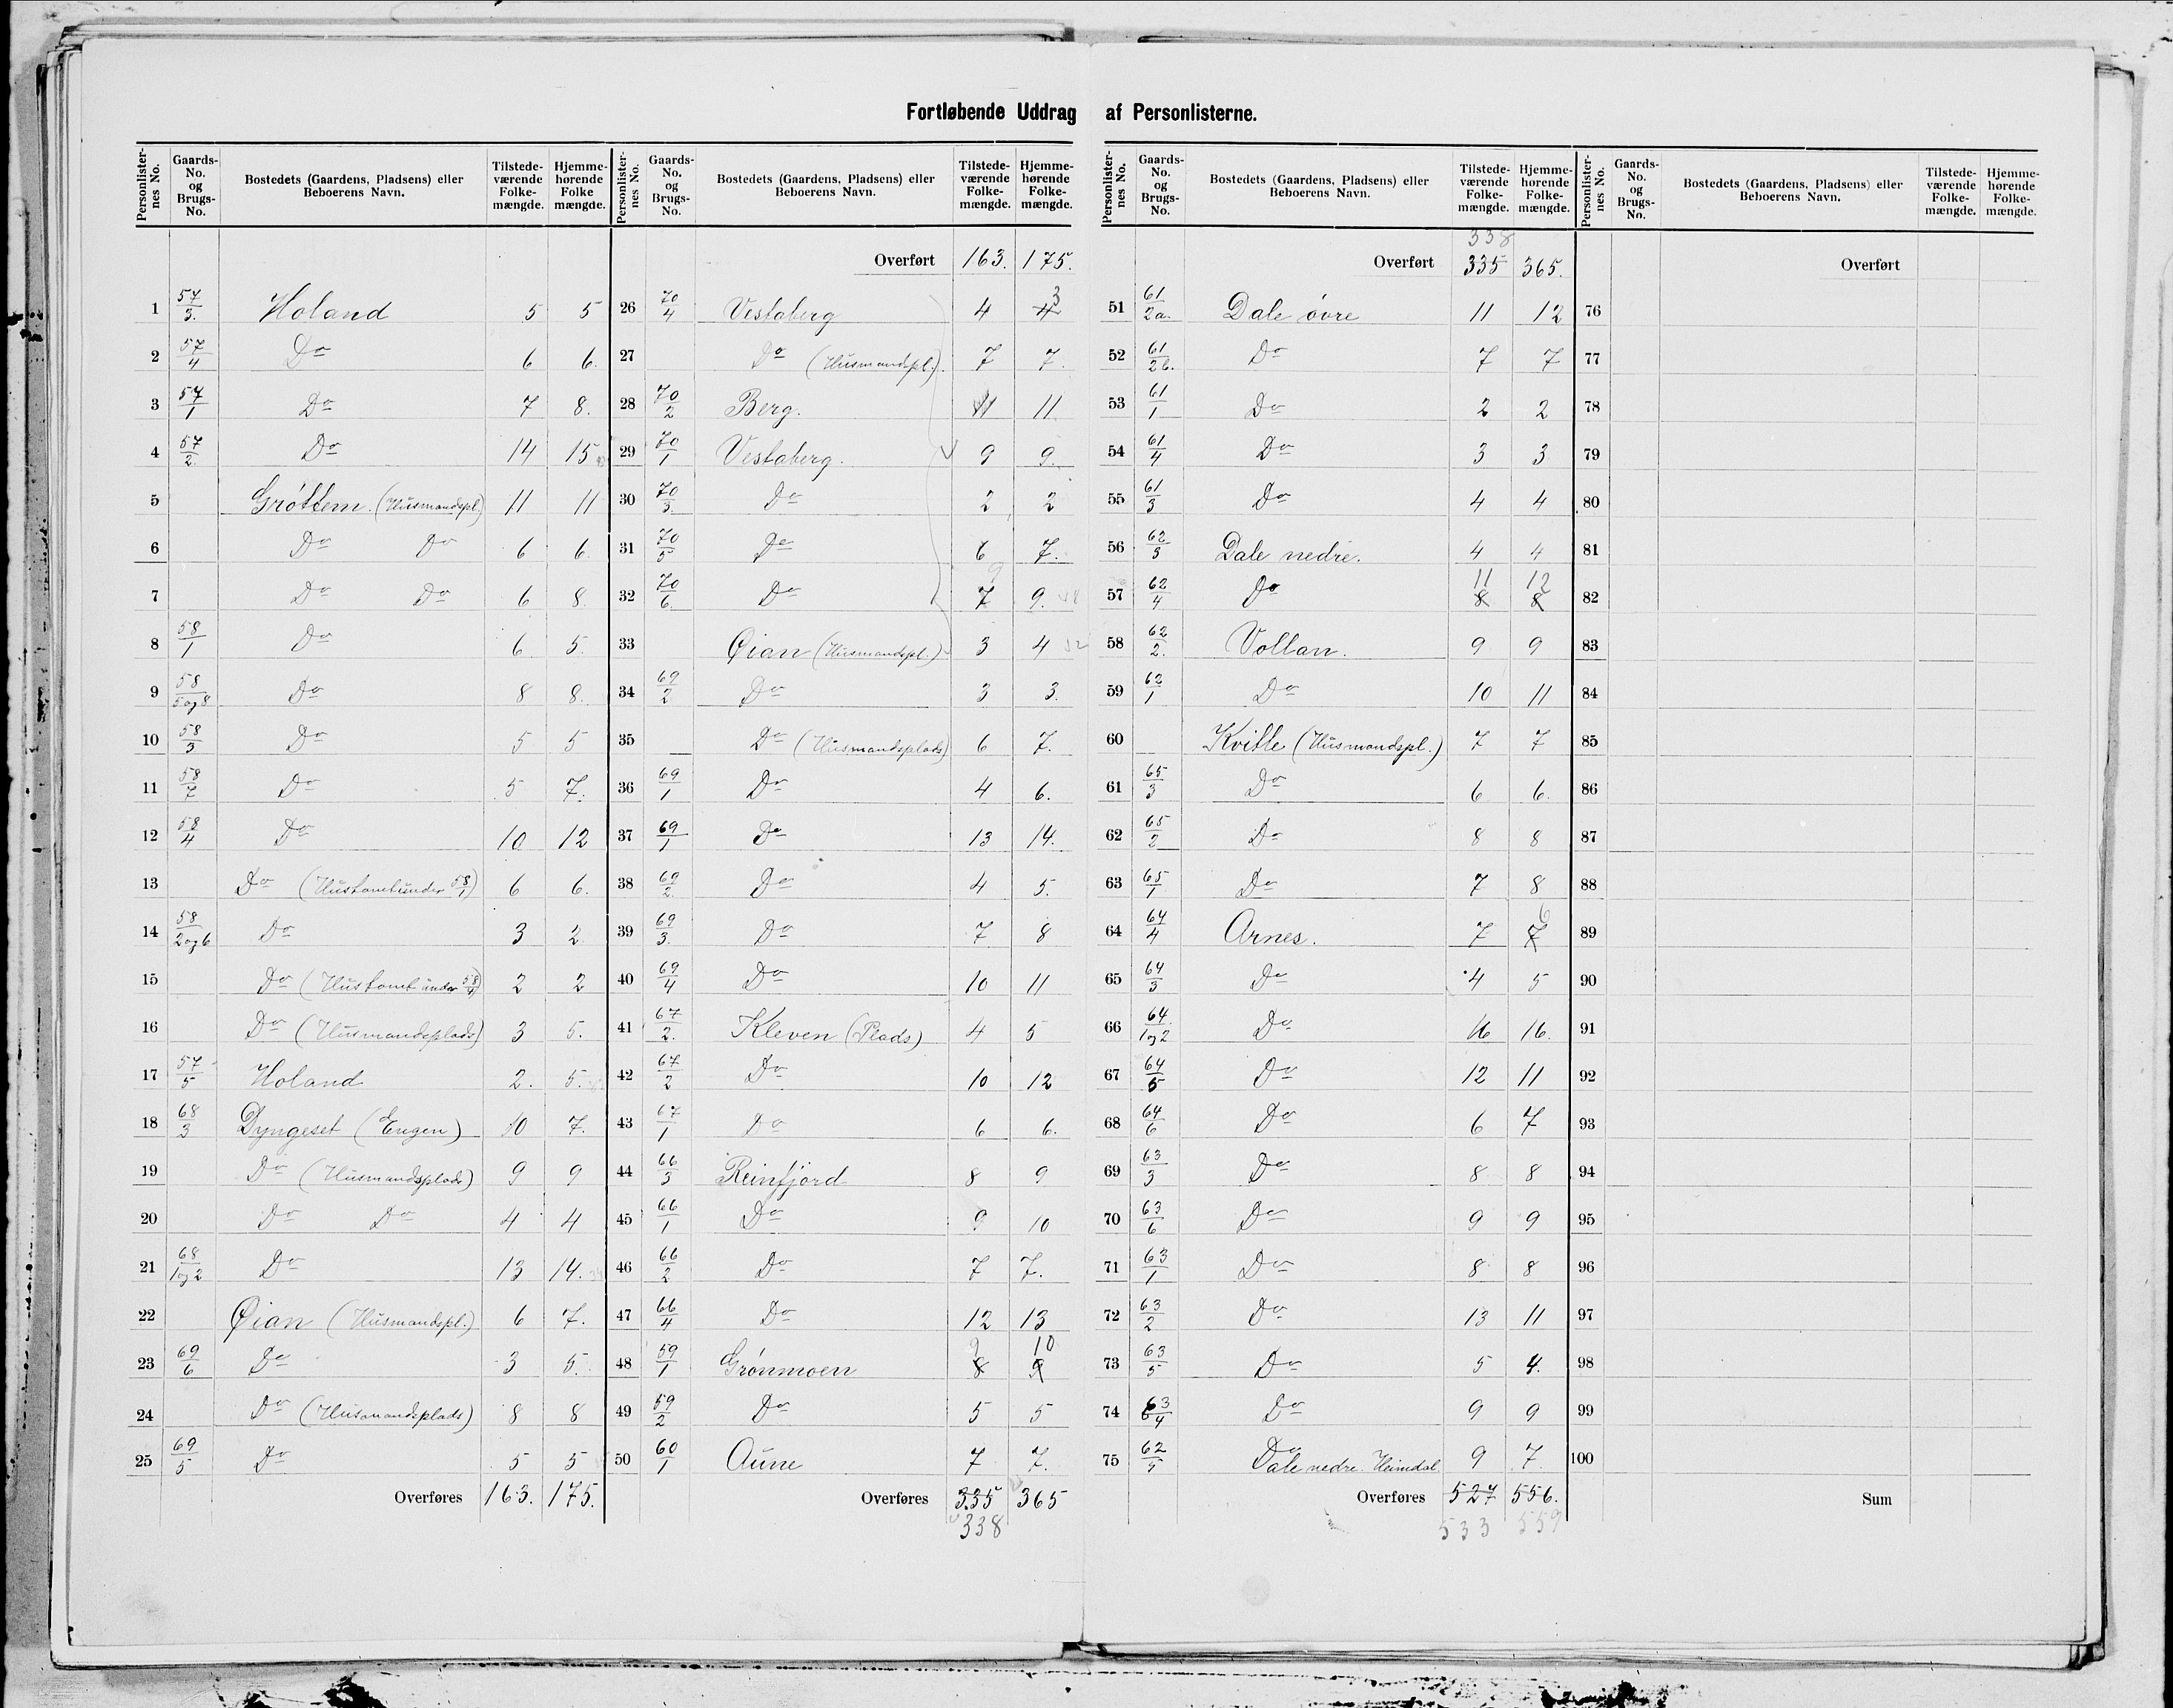 Fortløbende Uddrag af Personlisterne.
Personlisternes No. | Gaards-No. og Brugs-No. | Bostedets (Gaardens, Pladsens) eller Beboerens Navn. | Tilstedeværende Folkemængde. | Hjemmehørende Folkemængde.
1 | 57/3. | Holand | 5 | 5
2 | 57/4 | Do | 6 | 6.
3 | 57/1 | Do | 7 | 8.
4 | 57/2. | Do | 14 | 15
5 | | Grøttem. (Husmandspl.) | 11 | 11
6 | | Do Do | 6 | 6
7 | | Do Do | 6 | 8.
8 | 58/1 | Do | 6 | 5.
9 | 58/5 og 8 | Do | 8 | 8.
10 | 58/3 | Do | 5 | 5
11 | 58/7 | Do | 5 | 7.
12 | 58/4 | Do | 10 | 12
13 | | Do (Hustomt under 58/1) | 6 | 6.
14 | 58/2 og 6 | Do | 3 | 2
15 | | Do (Hustomt under 58/4) | 2 | 2
16 | | Do (Husmandsplads) | 3 | 5.
17 | 57/5 | Holand | 2. | 5.
18 | 68/3 | Dyngeset (Engen) | 10 | 7.
19 | | Do (Husmandsplads) | 9 | 9
20 | | Do Do | 4 | 4
21 | 68/1 og 2 | Do | 13 | 14.
22 | | Øian (Husmandspl.) | 6 | 7.
23 | 69/6 | Do | 3 | 5.
24 | | Do (Husmandsplads) | 8 | 8
25 | 69/5 | Do | 5 | 5
Overføres 163. 175.
Overført 163. 175.
26 | 70/4 | Vestaberg | 4 | 4 3
27 | | Do (Husmandspl.) | 7 | 7.
28 | 70/2 | Berg. | 11 | 11
29 | 70/1 | Vestaberg. | 9 | 9.
30 | 70/3. | Do | 2 | 2
31 | 70/5 | Do | 6 | 7.
32 | 70/6. | Do | 7 9 | 9.
33 | | Øian (Husmandspl.) | 3 | 4
34 | 69/2 | Do | 3 | 3.
35 | | Do (Husmandsplads) | 6 | 7.
36 | 69/1 | Do | 4 | 6.
37 | 69/1 | Do | 13 | 14.
38 | 69/2. | Do | 4 | 5.
39 | 69/3. | Do | 7 | 8
40 | 69/4 | Do | 10 | 11
41 | 67/2. | Kleven (Plads) | 4 | 5
42 | 67/2 | Do | 10 | 12
43 | 67/1 | Do | 6 | 6.
44 | 66/3 | Reinfjord | 8 | 9
45 | 66/1 | Do | 9 | 10
46 | 66/2 | Do | 7 | 7.
47 | 66/4 | Do | 12 | 13
48 | 59/1 | Grønmoen | 8 9 | 9 10
49 | 59/2 | Do | 5 | 5
50 | 60/1 | Aune | 7 | 7.
Overføres 335 365
338
338
Overført 335 365.
51 | 61/2a. | Dale øvre | 11 | 12
52 | 61/2b. | Do | 7 | 7
53 | 61/1 | Do | 2 | 2
54 | 61/4 | Do | 3 | 3
55 | 61/3 | Do | 4 | 4
56 | 62/3 | Dale nedre. | 4 | 4
57 | 62/4 | Do | 8 11 | 8 12
58 | 62/2. | Vollan. | 9 | 9
59 | 62/1 | Do | 10 | 11
60 | | Kvitle (Husmandspl.) | 7 | 7
61 | 65/3 | Do | 6 | 6.
62 | 65/2 | Do | 8 | 8
63 | 65/1 | Do | 7 | 8
64 | 64/4 | Arnes. | 7 | 7 6
65 | 64/3 | Do | 4 | 5
66 | 64/1 og 2 | Do | 16 | 16.
67 | 64/5 | Do | 12 | 11
68 | 64/6 | Do | 6 | 7
69 | 63/3 | Do | 8 | 8
70 | 63/6 | Do | 9 | 9
71 | 63/1 | Do | 8 | 8
72 | 63/2 | Do | 13 | 11
73 | 63/5 | Do | 5 | 4.
74 | 63/4 | Do | 9 | 9
75 | 62/5 | Dale nedre. Heimdal | 9 | 7.
Overføres 527 556.
533 559
Overført
76
77
78
79
80
81
82
83
84
85
86
87
88
89
90
91
92
93
94
95
96
97
98
99
100
Sum